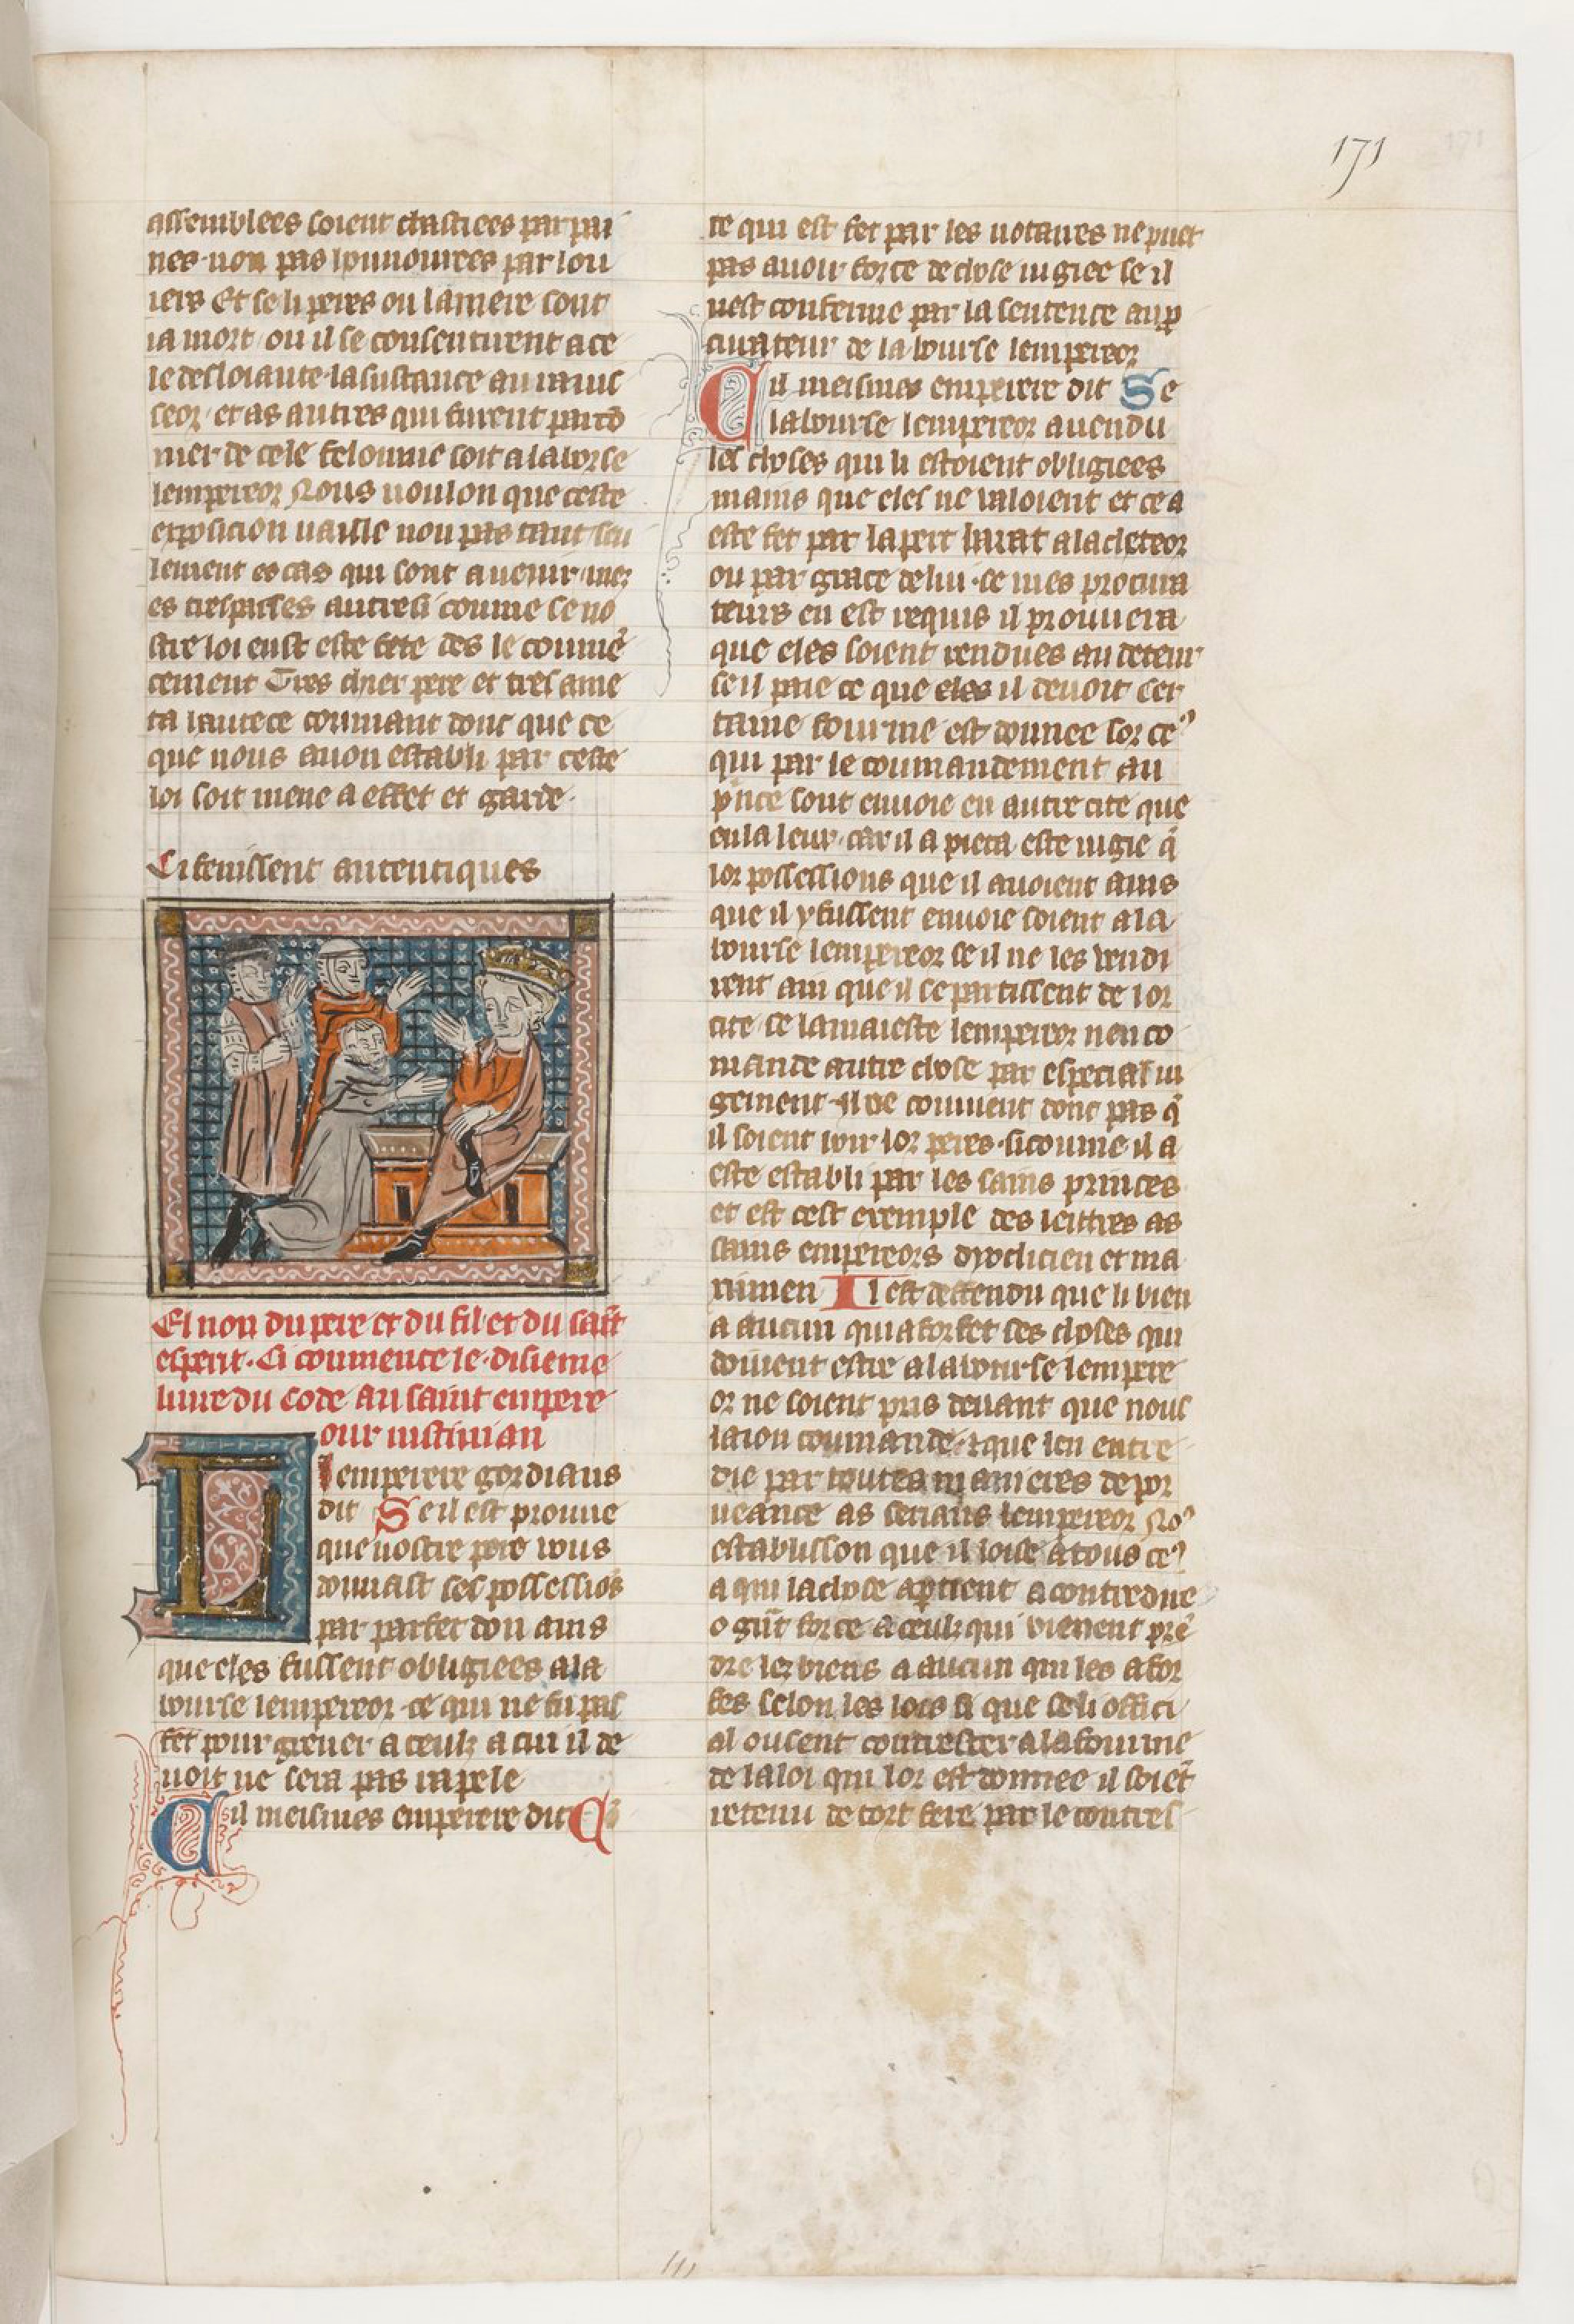 171
assemblees soient chastiees par pai
nes non pas honnourees par lou
iers Et se li peres ou la mere sont
ia mort ou il se consentirent a ce
le desloiaute la sustance au rauis
seor et as autres qui furent parco
nier de cele felonnie soit a la borse
lempereor Nous uoulon que ceste
exposicion uaille non pas tant seu
lement es cas qui sont a uenir mes
es trespasses autresi comme se no
stre loi eust este fete des le comme
cement Tres chier pere et tres ame
ta hautece commant donc que ce
que nous auon establi par ceste
loi soit mene a effet et garde
Ci fenissent autentiques
El non du pere et du fil et du saint
esperit. Ci commence le disieme
liure du code au saint empere
our iustinian
Lemperere gordians
dit Se il est prouue
que uostre pere uous
donnast ses possessions
par parfet don ains
que eles fussent obligiees a la
bourse lempereor ce qui ne fu pas
fet pour greuer a ceulz a cui il de
uoit ne sera pas rapele
Cil meismes emperere dit C
ce qui est fet par les notaires ne puet
pas auoir force de chose iugiee se il
nest conferme par la sentence au p
curateur de la bourse lempereor
Cil meismes emperere dit Se
la bourse lempereor a uendu
les choses qui li estoient obligiees
mains que eles ne ualoient et ce a
este fet par la pert barat a lacheteor
ou par grace de lui se mes procura
teurs en est requis il prouuera
que eles soient rendues au deteur
se il paie ce que eles il deuoit Cer
taine fourme est donnee sor ce9
qui par le commandement au
pnce sont enuoie en autre cite que
en la leur car il a pieca este iugie q
lor possessions que il auoient ains
que il y fussent enuoie soient a la
bourse lempereor se il ne les uendi
rent ain que il se partissent de lor
cite se la maieste lempereor nen co
mande autre chose par especial iu
gement Il ne conuient donc pas q
il soient pour lor peres si comme il a
este establi par les sains princes
et est cest exemple des lettres as
sains empereors dyoclicien et ma
ximien Il est deffendu que li bien
a aucun qui a forfet ses choses qui
doiuent estre a la bourse lempere
or ne soient pris deuant que nous
laion commande et que len entre
die par toutes manieres de por
ueance as serians lempereor No9
establisson que il loise a tous ce9
a qui la chose aptient a contredire
o gnt force a ceulz qui uienent pre
dre lez biens a aucun qui les a for
fes selon les lois si que se li offici
al ousent contrester a la fourme
de la loi qui lor est donnee il soiet
retenu de tort fere par le contres